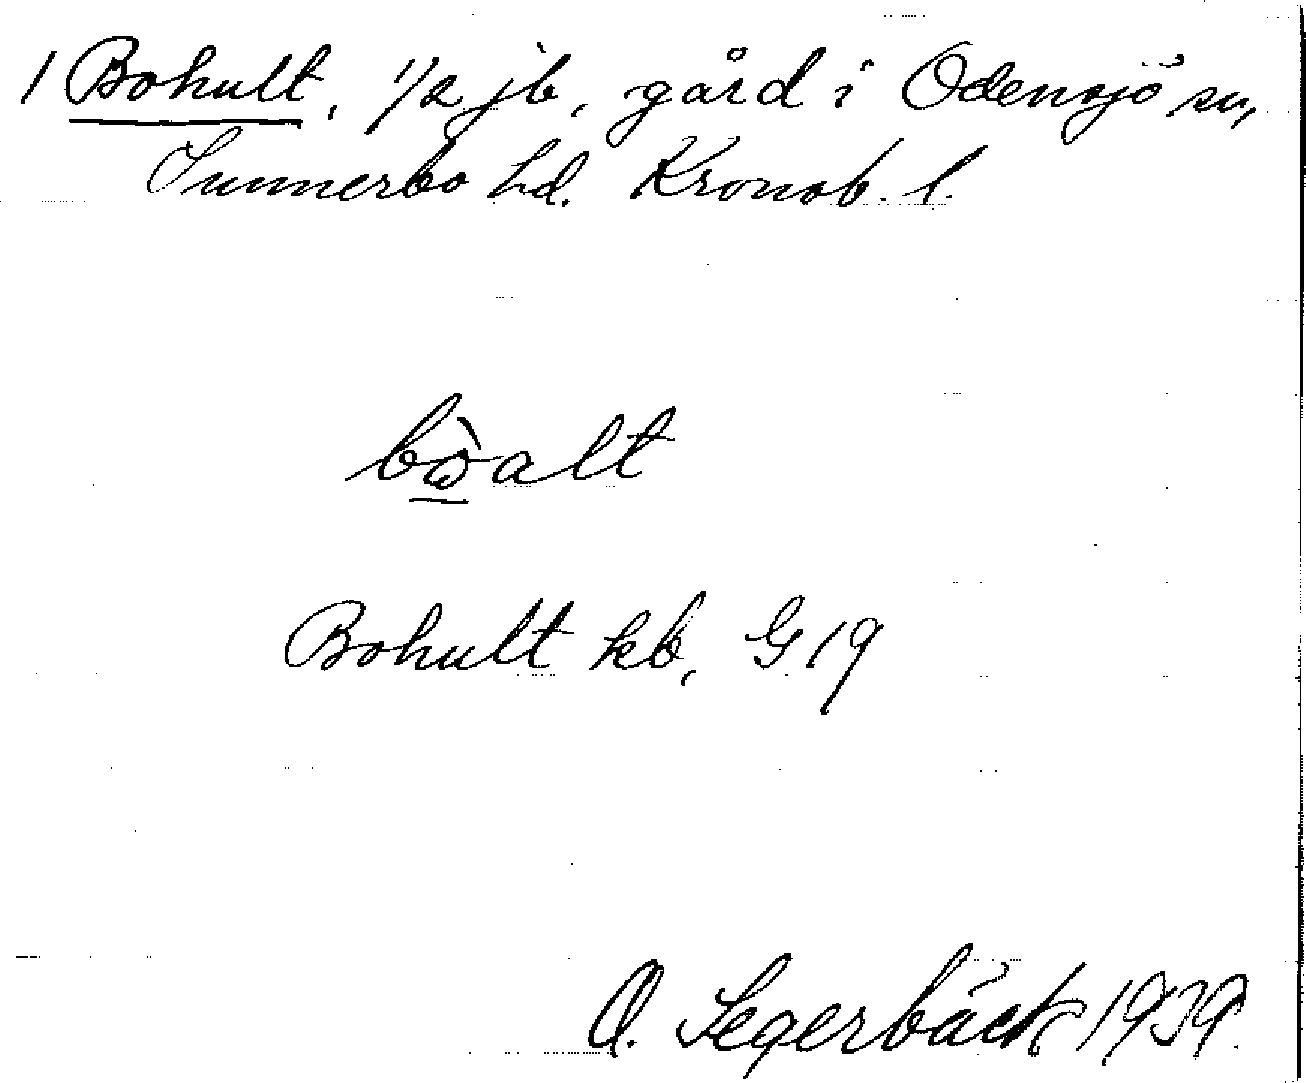 1 Bohult, 1/2 jb, gård i Odensjö sn,
Sunnerbo hd. Kronob. l.
bὼ̲alt
Bohult kb, G 19
O. Segerbäck 1939.